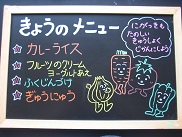 きょうのメニュー
カレーライス
フルーツのクリーム
ヨーグルトあえ
ふくじんづけ
ぎゅうにゅう
にがっきも
たのしい
きゅうしょく
じかんにしよう